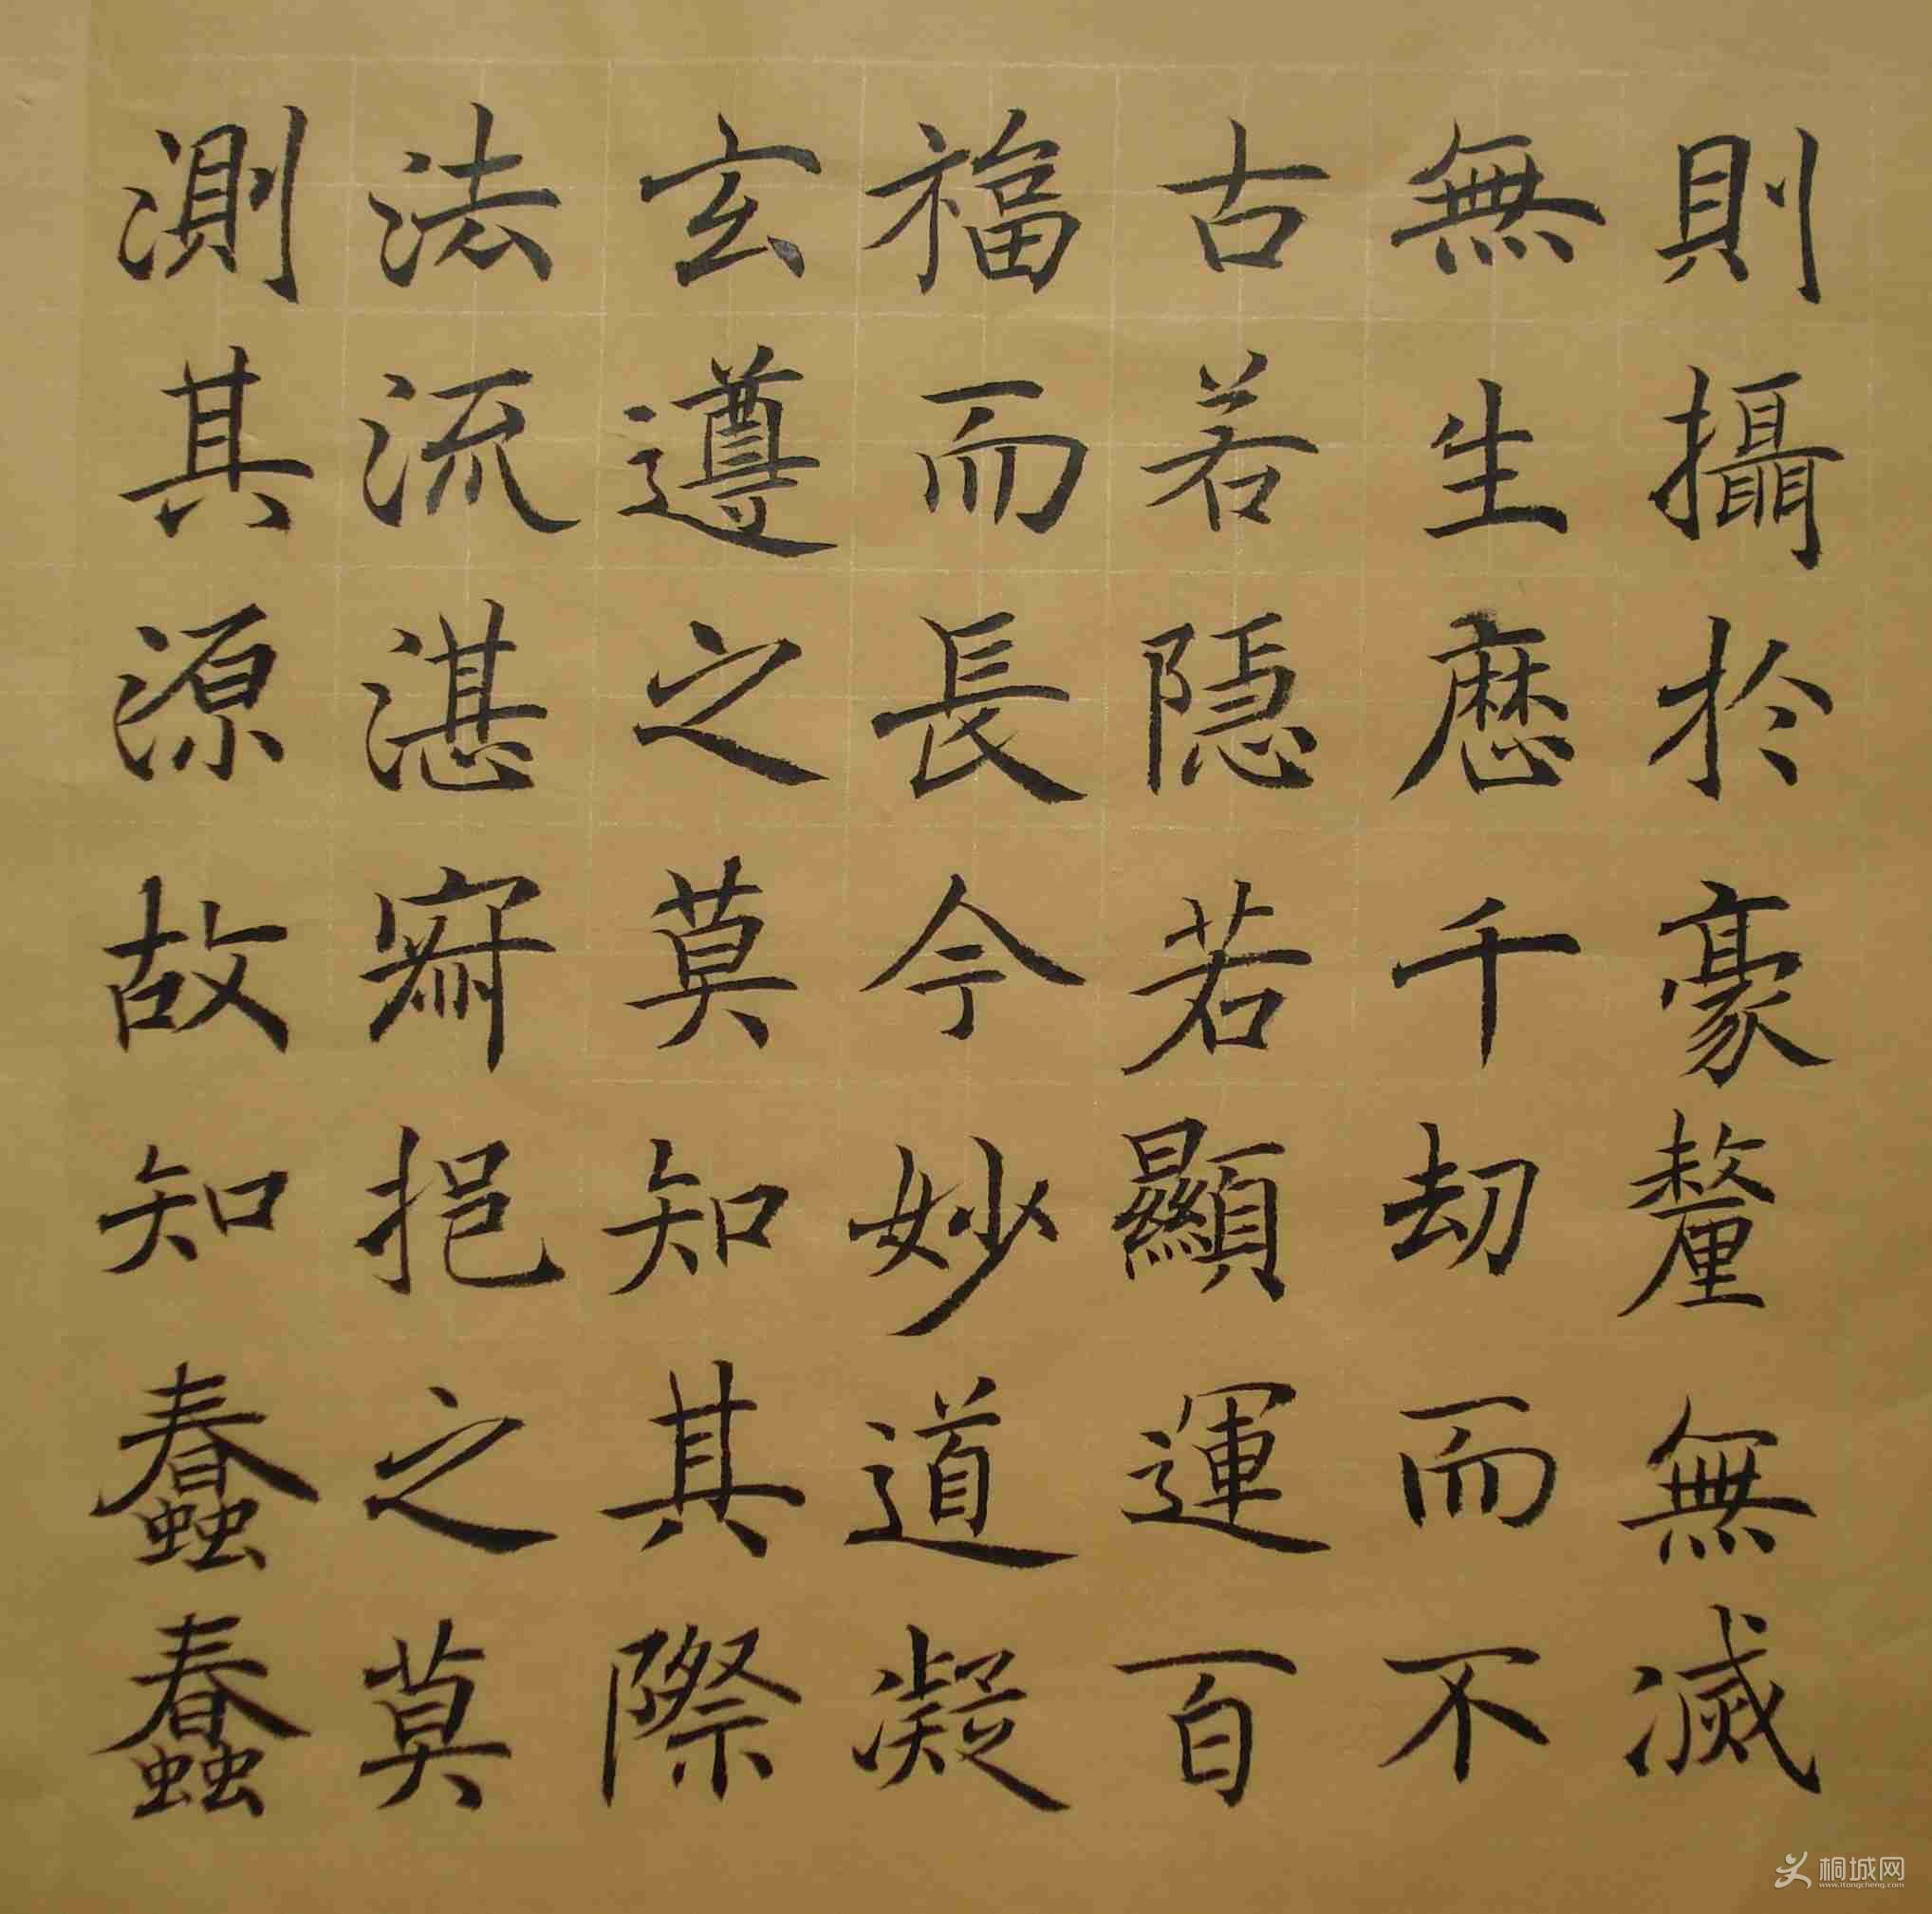 則攝於豪釐無滅
無生歷千劫而不
古若隱若顯運百
福而長今妙道凝
玄遵之莫知其際
法流湛寂挹之莫
測其源故知蠢蠢
桐城网
www.itongcheng.com